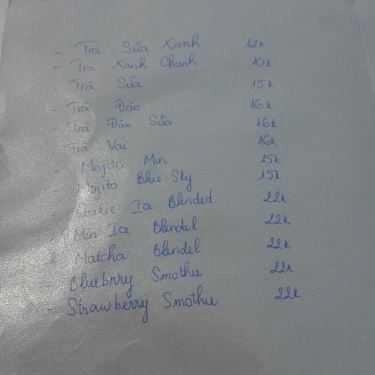 - Trà Sữa Xanh 12k
- Trà Xanh Chanh 10k
- Trà Sữa 15k
- Trà Đào 16k
- Trà Đào Sữa 16k
- Trà Vải 16k
- Mojito Min 15k
- Mojito Blue Sky 15k
- Cookie Ice Blended 22k
- Min Ice Blendel 22k
- Matcha Blendel 22k
- Bluebrry Smothie 22k
- Strawberry Smothie 22k